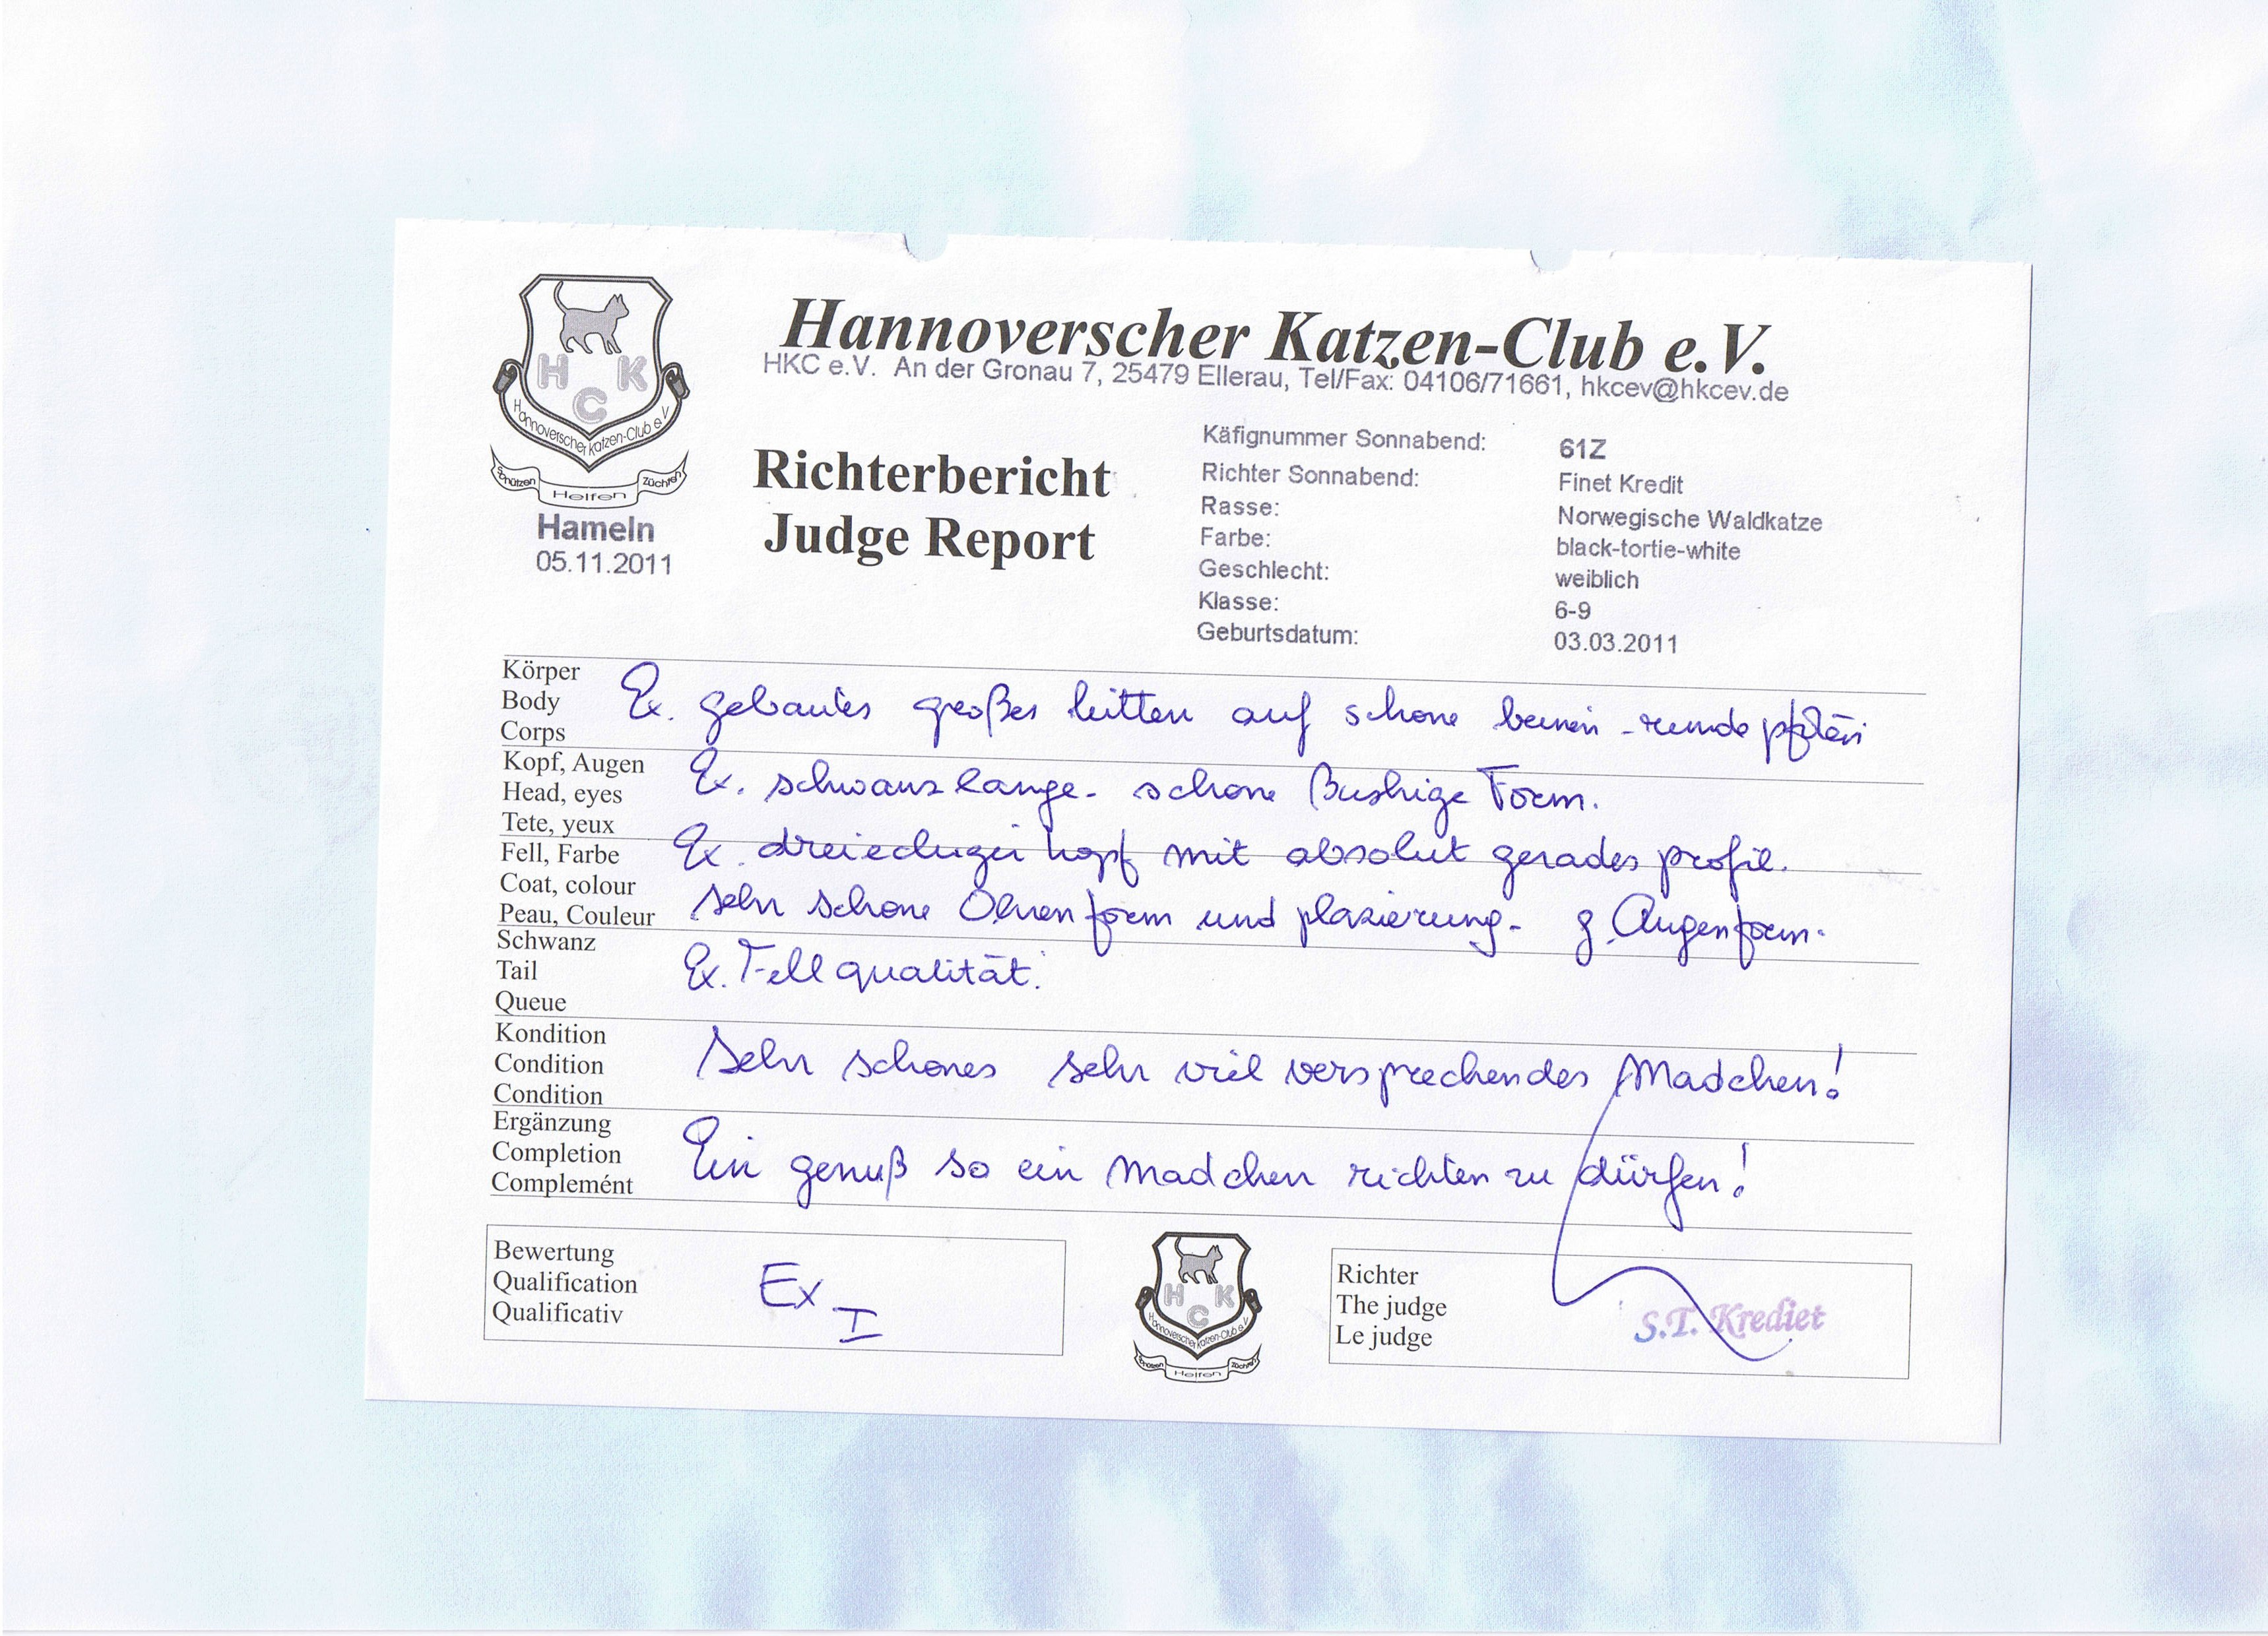 H K
C
Hannoverscher Katzen-Club e.V.
Schützen Helfen Züchten
Hannoverscher Katzen-Club e.V.
HKC e.V. An der Gronau 7, 25479 Ellerau, Tel/Fax: 04106/71661, hkcev@hkcev.de
Hameln
05.11.2011
Richterbericht
Judge Report
Käfignummer Sonnabend: 61Z
Richter Sonnabend: Finet Kredit
Rasse: Norwegische Waldkatze
Farbe: black-tortie-white
Geschlecht: weiblich
Klasse: 6-9
Geburtsdatum: 03.03.2011
Körper
Body
Corps
Ex. gebautes großes kitten auf schone beinen - runde
Kopf, Augen
Head, eyes
Tete, yeux
Ex. schwanz lange - schone Bushige Form.
Fell, Farbe
Coat, colour
Peau, Couleur
Ex. dreieckiger kopf mit absolut gerades profil.
sehr schone Ohrenform und plazierung - g. Augenform.
Schwanz
Tail
Queue
Ex. Fellqualität.
Kondition
Condition
Condition
Sehr schones sehr viel versprechendes Madchen!
Ergänzung
Completion
Complemént
Ein genuß so ein Madchen richten zu dürfen!
Bewertung
Qualification
Qualificativ
Ex I
H K
C
Hannoverscher Katzen-Club e.V.
Schützen Helfen Züchten
Richter
The judge
Le judge
S.T. Krediet